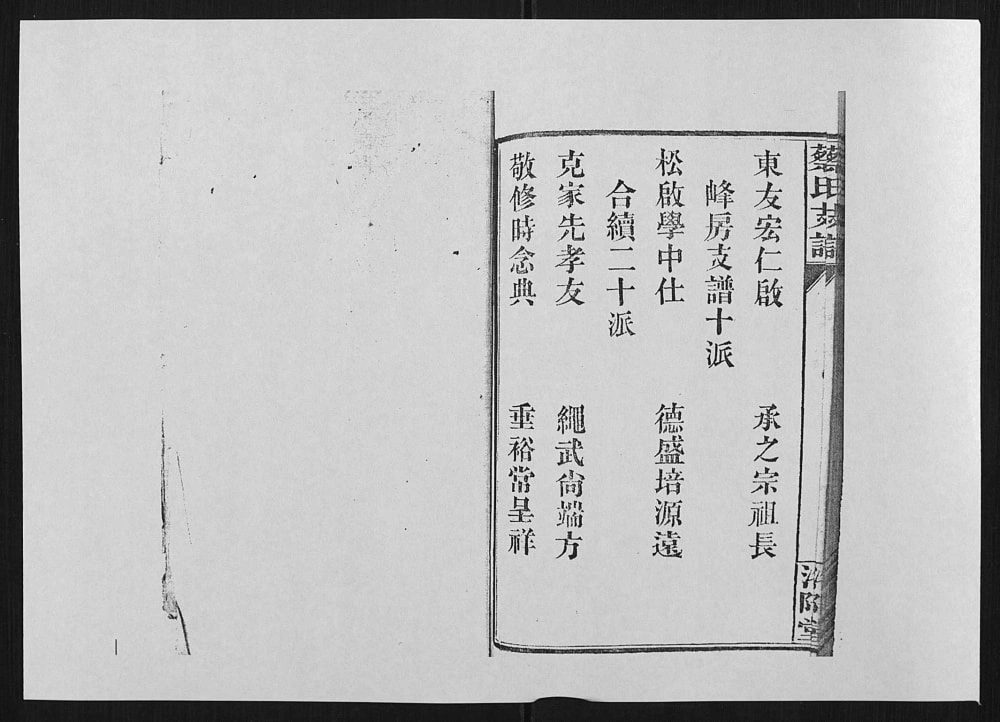 蔡氏支譜
東友宏仁啟　承之宗祖長
峰房支譜十派
松啟學中仕　德盛培源遠
合續二十派
克家先孝友　繩武尙端方
敬修時念典　垂裕常呈祥
濟陽堂